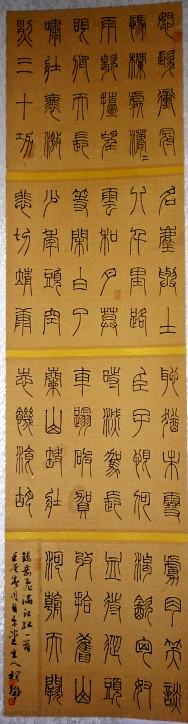 怒髮衝冠
憑欄處瀟〻
雨歇抬望
眼仰天長
嘯壯懷激
烈三十功
名塵與土
八千里路
雲和月莫
等閒白了
少年頭空
悲切靖康
恥猶未雪
臣子恨何
時滅駕長
車踏破賀
蘭山缺壯
志饑餐胡
虜肉笑談
渴飲匈奴
血待從頭
收拾舊山
河朝天闕
錄岳飛滿江紅一首